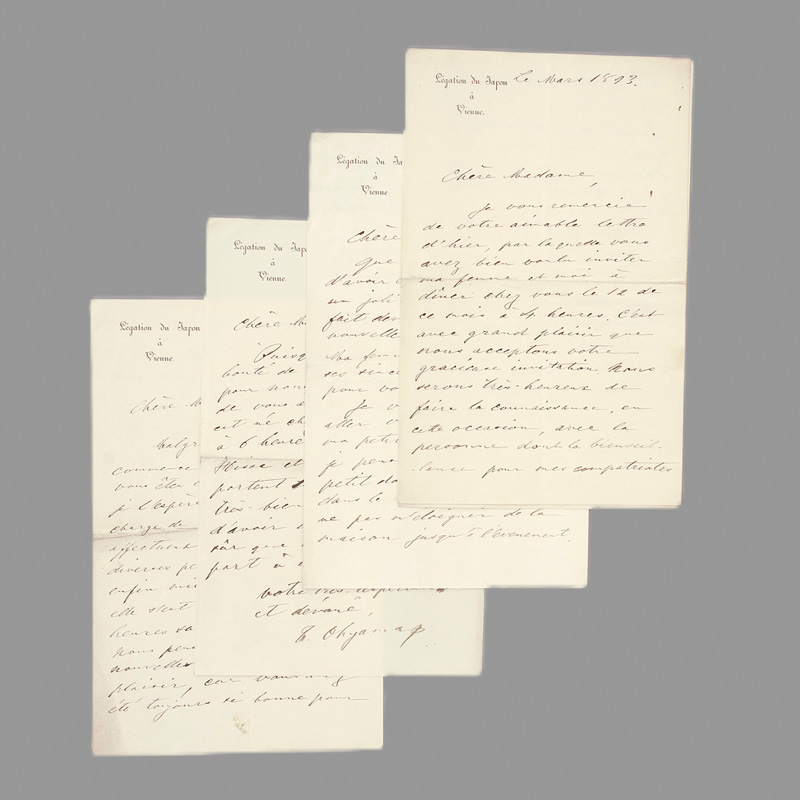 Légation du Japon
à
Vienne.
Le Mars 1893.
Chère Madame,
Je vous remercie
de votre aimable lettre
d'hier, par laquelle vous
avez bien voulu inviter
ma femme et moi à
dîner chez vous le 12 de
ce mois à 4 heures. C'est
avec grand plaisir que
nous acceptons votre
gracieuse invitation. Nous
serons très-heureux de
faire la connaissance, en
cette occasion, avec la
personne dont la bienveil-
lance pour mes compatriotes
Légation du Ja
à
Vienne.
Chère
Que
d'avoir
un joli
fait
nouvelle
Ma fem
ses
pour vo
Je v
aller
ma petit
je pen
petit
dans le
ne pas m'éloigner de la
maison jusqu'à l'évenement.
Légation du Jap
à
Vienne.
Chère M
Puisq
bonté de
pour
de vous
est né
à 6 heure
et
portent
très-bien
d'avoir
sûr que
part à
votre très-
et dévoué,
T. Ohyama
Légation du Japon
à
Vienne.
Chère M
Malgr
vous êtes
je l'espère
charge de
affectueu
diverses pe
enfin
elle
heures
nous pens
nouvelles
plaisir, car
été toujours si bonne pour